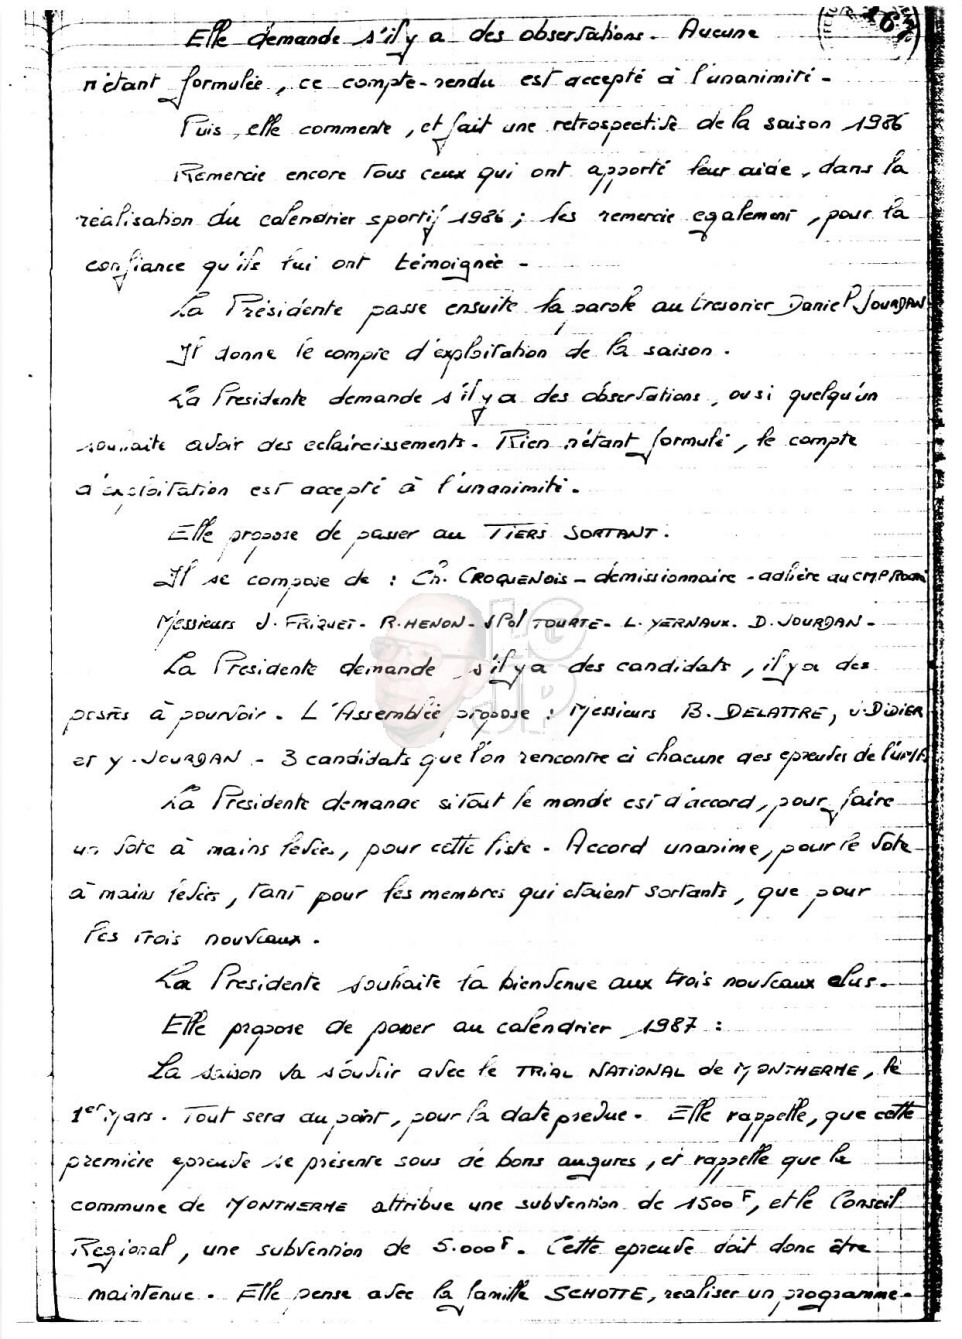 167
Elle demande s'il y a des observations. Aucune
n'étant formulée, ce compte-rendu est accepté à l'unanimité.
Puis, elle commente, et fait une retrospective de la saison 1986
Remercie encore tous ceux qui ont apporté leur aide, dans la
réalisation du calendrier sportif 1986 ; les remercie egalement, pour la
confiance qu'ils lui ont témoignée -
La Présidente passe ensuite la parole au tresorier Daniel JOURDAN
Il donne le compte d'exploitation de la saison.
La Presidente demande s'il y a des observations, ou si quelqu'un
souhaite avoir des eclaircissements. Rien n'étant formulé, le compte
d'exploitation est accepté à l'unanimité.
Elle propose de passer au TIERS SORTANT.
Il se compose de : Ch. CROQUENOIS - demissionnaire - adhère au CMP
Messieurs J. FRIQUET - R. HENON - Pol TOURTE - L. YERNAUX. D. JOURDAN -
La Presidente demande s'il y a des candidats, il y a des
postes à pourvoir. L'Assemblée propose : Messieurs B. DELATTRE, J. DIDIER
et Y. JOURDAN - 3 candidats que l'on rencontre à chacune des epreuves de
La Presidente demande si tout le monde est d'accord, pour faire
un vote à mains levées, pour cette liste - Accord unanime, pour le vote
à mains levées, tant pour les membres qui etaient sortants, que pour
les trois nouveaux.
La Presidente souhaite la bienvenue aux trois nouveaux elus.
Elle propose de passer au calendrier 1987 :
La saison va s'ouvrir avec le TRIAL NATIONAL de MONTHERME, le
1er Mars. Tout sera au point, pour la date prevue. Elle rappelle, que cette
première epreuve se présente sous de bons augures, et rappelle que la
commune de MONTHERME attribue une subvention de 1500 F, et le Conseil
Regional, une subvention de 5.000 F. Cette epreuve doit donc être
maintenue. Elle pense avec la famille SCHOTTE, realiser un programme.
LG
JP